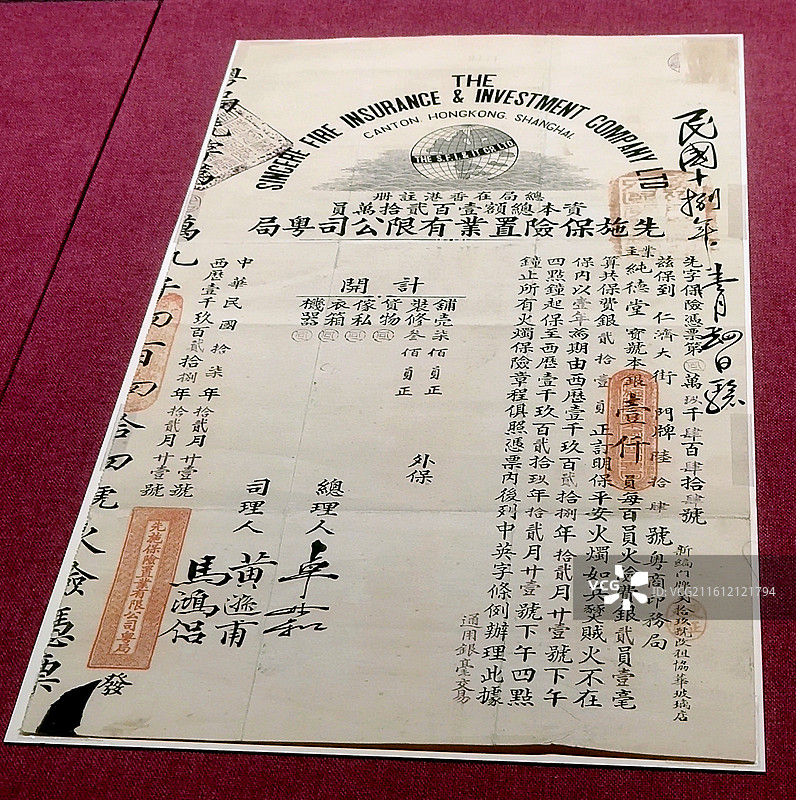 THE
SINCERE FIRE INSURANCE & INVESTMENT COMPANY LTD
CANTON. HONGKONG. SHANGHAI.
THE S.F.I. & IT CO. LTD.
總局在香港註冊
資本總額壹百貳拾萬員
先施保險置業有限公司粵局
民國十捌年
先字保險憑票第 萬玖千肆百肆拾肆號
茲保到 仁濟大街 門牌陸拾肆號粵商印務局
業主純德堂 寶號本銀壹仟員每百員火險費銀貳員壹毫
算共保費銀貳拾壹員正訂明保平安火燭如兵燹賊火不在
保內以壹年為期由西歷壹千玖百貳拾捌年拾貳月廿壹號下午
四點鐘起保至西歷壹千玖百貳拾玖年拾貳月廿壹號下午四點
鐘止所有火燭保險章程俱照憑票內後列中英字條例辦理此據
通用銀毫交易
新編門牌 拾玖號改租協華玻璃店
計開
舖壳柒佰員正
裝修叁佰員正
貨物
傢私
衣箱
機器
外保
總理人
司理人
卓
黃
馬鴻侶
中華民國拾柒年拾貳月廿壹號
西歷壹千玖百貳拾捌年拾貳月廿壹號
先施保險置業有限公司粵局
發
萬九千四百四拾四號火險憑票
VCG
VCG211612121794